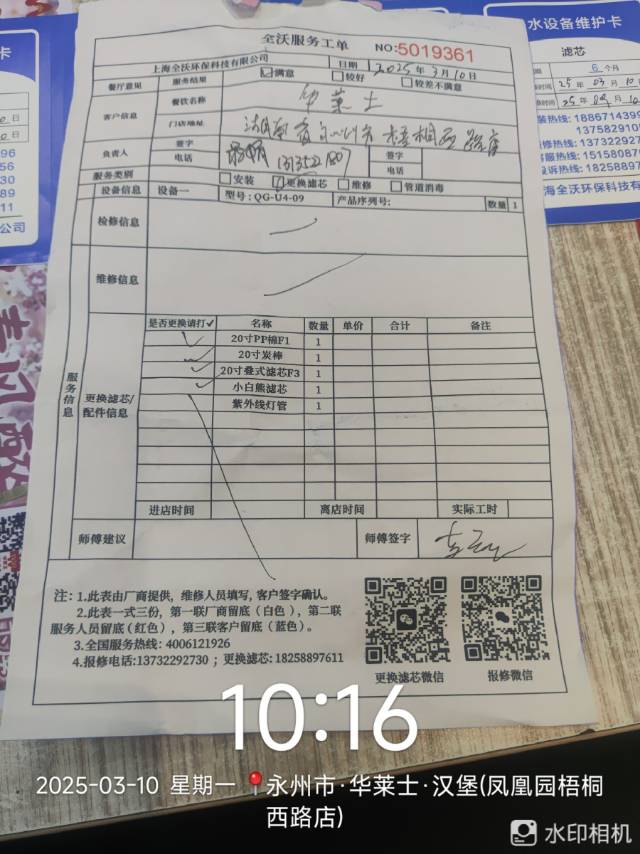 全沃服务工单 NO:5019361
上海全沃环保科技有限公司 日期 2025年3月10日
餐厅意见 服务结果 ☑满意 □较好 □较差不满意
客户信息 餐饮名称 华莱士
门店地址 梧桐西路店
负责人 签字 签字
电话 电话
服务类别 □安装 ☑更换滤芯 □维修 □管道消毒
设备信息 设备一 型号:QG-U4-09 产品序列号: 数量 1
检修信息
维修信息
服务信息
更换滤芯/配件信息
是否更换请打✓ 名称 数量 单价 合计 备注
✓ 20寸PP棉F1 1
✓ 20寸炭棒 1
✓ 20寸叠式滤芯F3 1
✓ 小白熊滤芯 1
紫外线灯管 1
进店时间 离店时间 实际工时
师傅建议 师傅签字
注:1.此表由厂商提供,维修人员填写,客户签字确认。
2.此表一式三份,第一联厂商留底(白色),第二联
服务人员留底(红色),第三联客户留底(蓝色)。
3.全国服务热线:4006121926
4.报修电话:13732292730;更换滤芯:18258897611
更换滤芯微信 报修微信
水设备维护卡
滤芯
6 个月
装热线:1886714399
13758291
修热线:1373229
服热线:15158087
诉热线:18258897
海全沃环保科技
卡
公司
10:16
2025-03-10 星期一 永州市·华莱士·汉堡(凤凰园梧桐
西路店)
水印相机